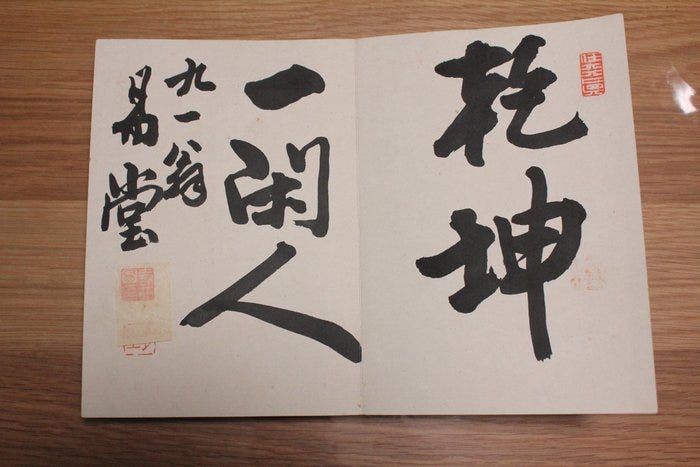 乾坤
一閑人
九一翁
易堂